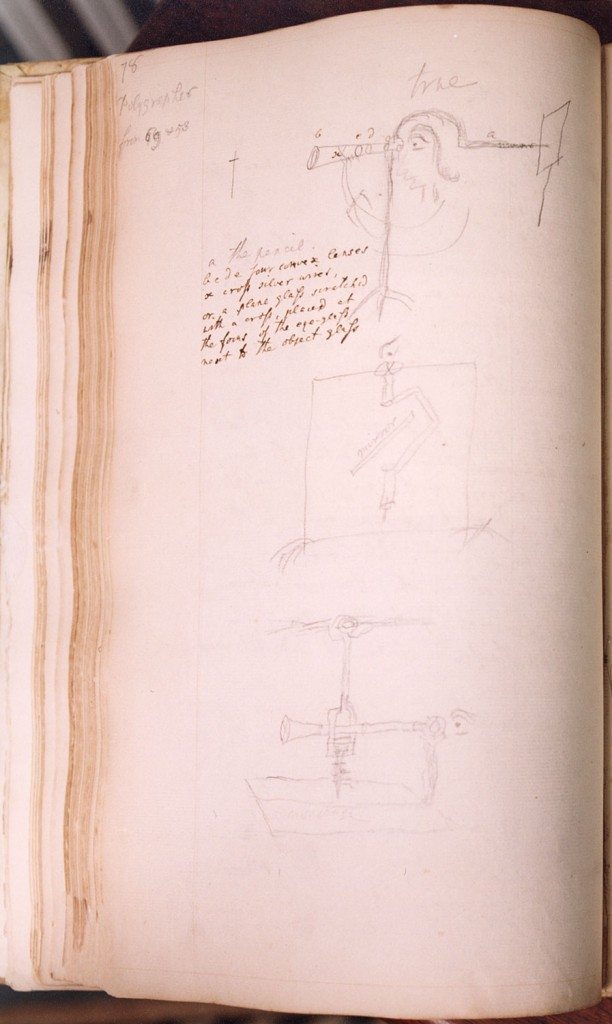 78
Polygrapher
from 69 & 58
true
b e d a
x
†
a the pencil.
b c d e four convex lenses
x cross silver wires,
or a plane glass scratched
with a cross, placed at
the focus of the eye-glass
next to the object glass
mirror